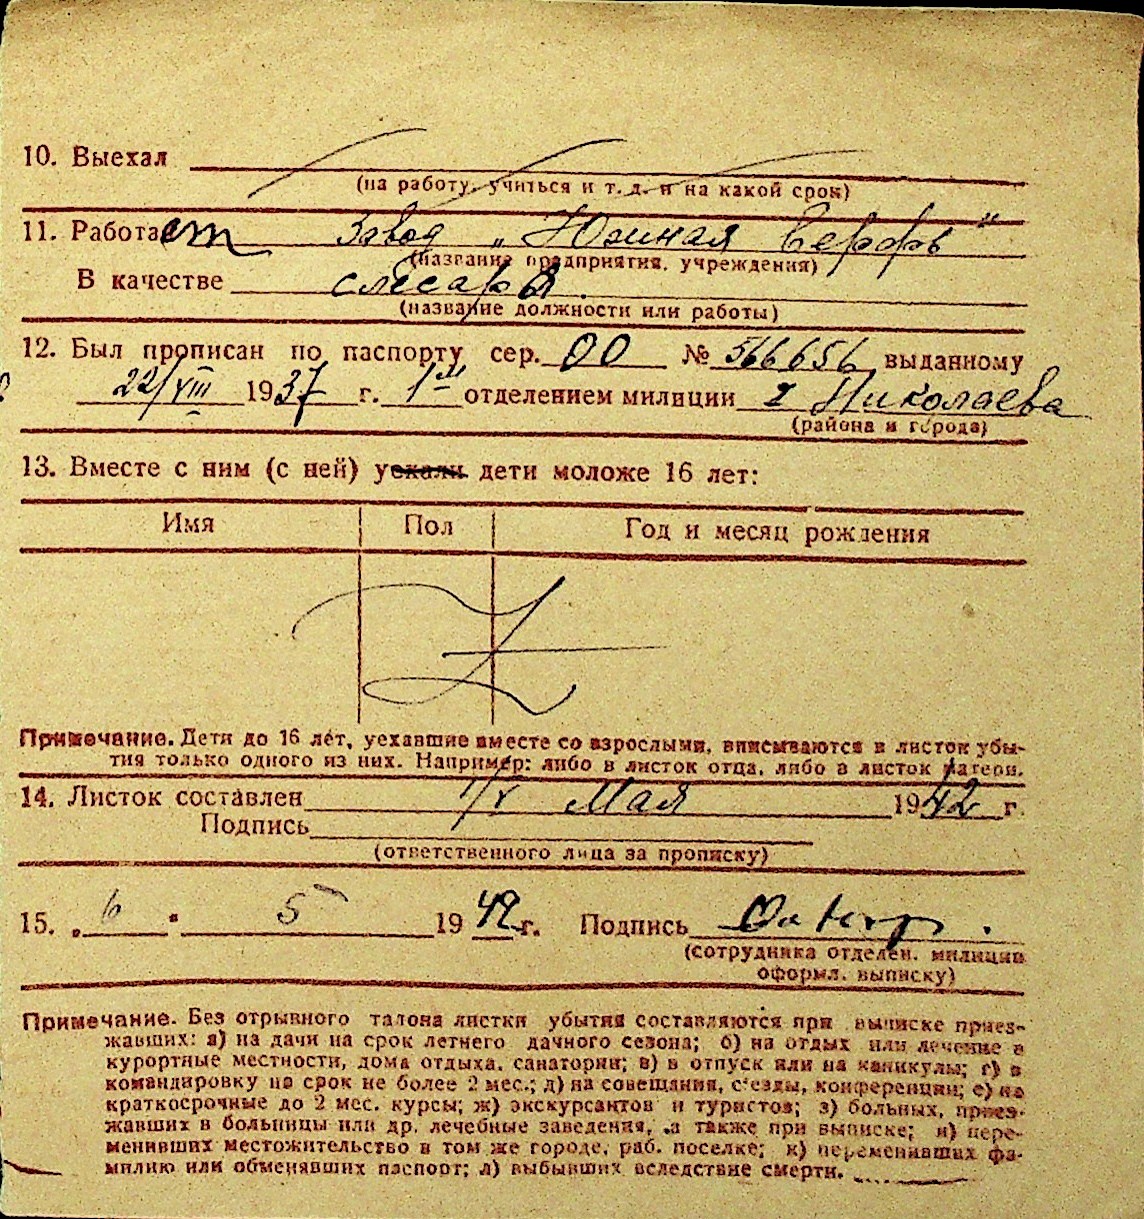 10. Выехал
(на работу, учиться и т. д. и на какой срок)
11. Работает Завод „Южная Верфь"
(название предприятия, учреждения)
В качестве слесаря.
(название должности или работы)
12. Был прописан по паспорту сер. ОО № 566656 выданному
22/VIII 1937 г. 1ым отделением милиции г Николаева
(района и города)
13. Вместе с ним (с ней) уехали дети моложе 16 лет:
Имя Пол Год и месяц рождения
Примечание. Дети до 16 лет, уехавшие вместе со взрослыми, вписываются в листок убы-
тия только одного из них. Например: либо в листок отца, либо в листок матери.
14. Листок составлен Мая 1942 г.
Подпись
(ответственного лица за прописку)
15. „6" 5 1942 г. Подпись
(сотрудника отделен. милиции
оформл. выписку)
Примечание. Без отрывного талона листки убытия составляются при выписке приез-
жавших: а) на дачи на срок летнего дачного сезона; б) на отдых или лечение в
курортные местности, дома отдыха, санатории; в) в отпуск или на каникулы; г) в
командировку на срок не более 2 мес.; д) на совещания, съезды, конференции; е) на
краткосрочные до 2 мес. курсы; ж) экскурсантов и туристов; з) больных, приез-
жавших в больницы или др. лечебные заведения, а также при выписке; и) пере-
менивших местожительство в том же городе, раб. поселке; к) переменивших фа-
милию или обменявших паспорт; л) выбывших вследствие смерти.